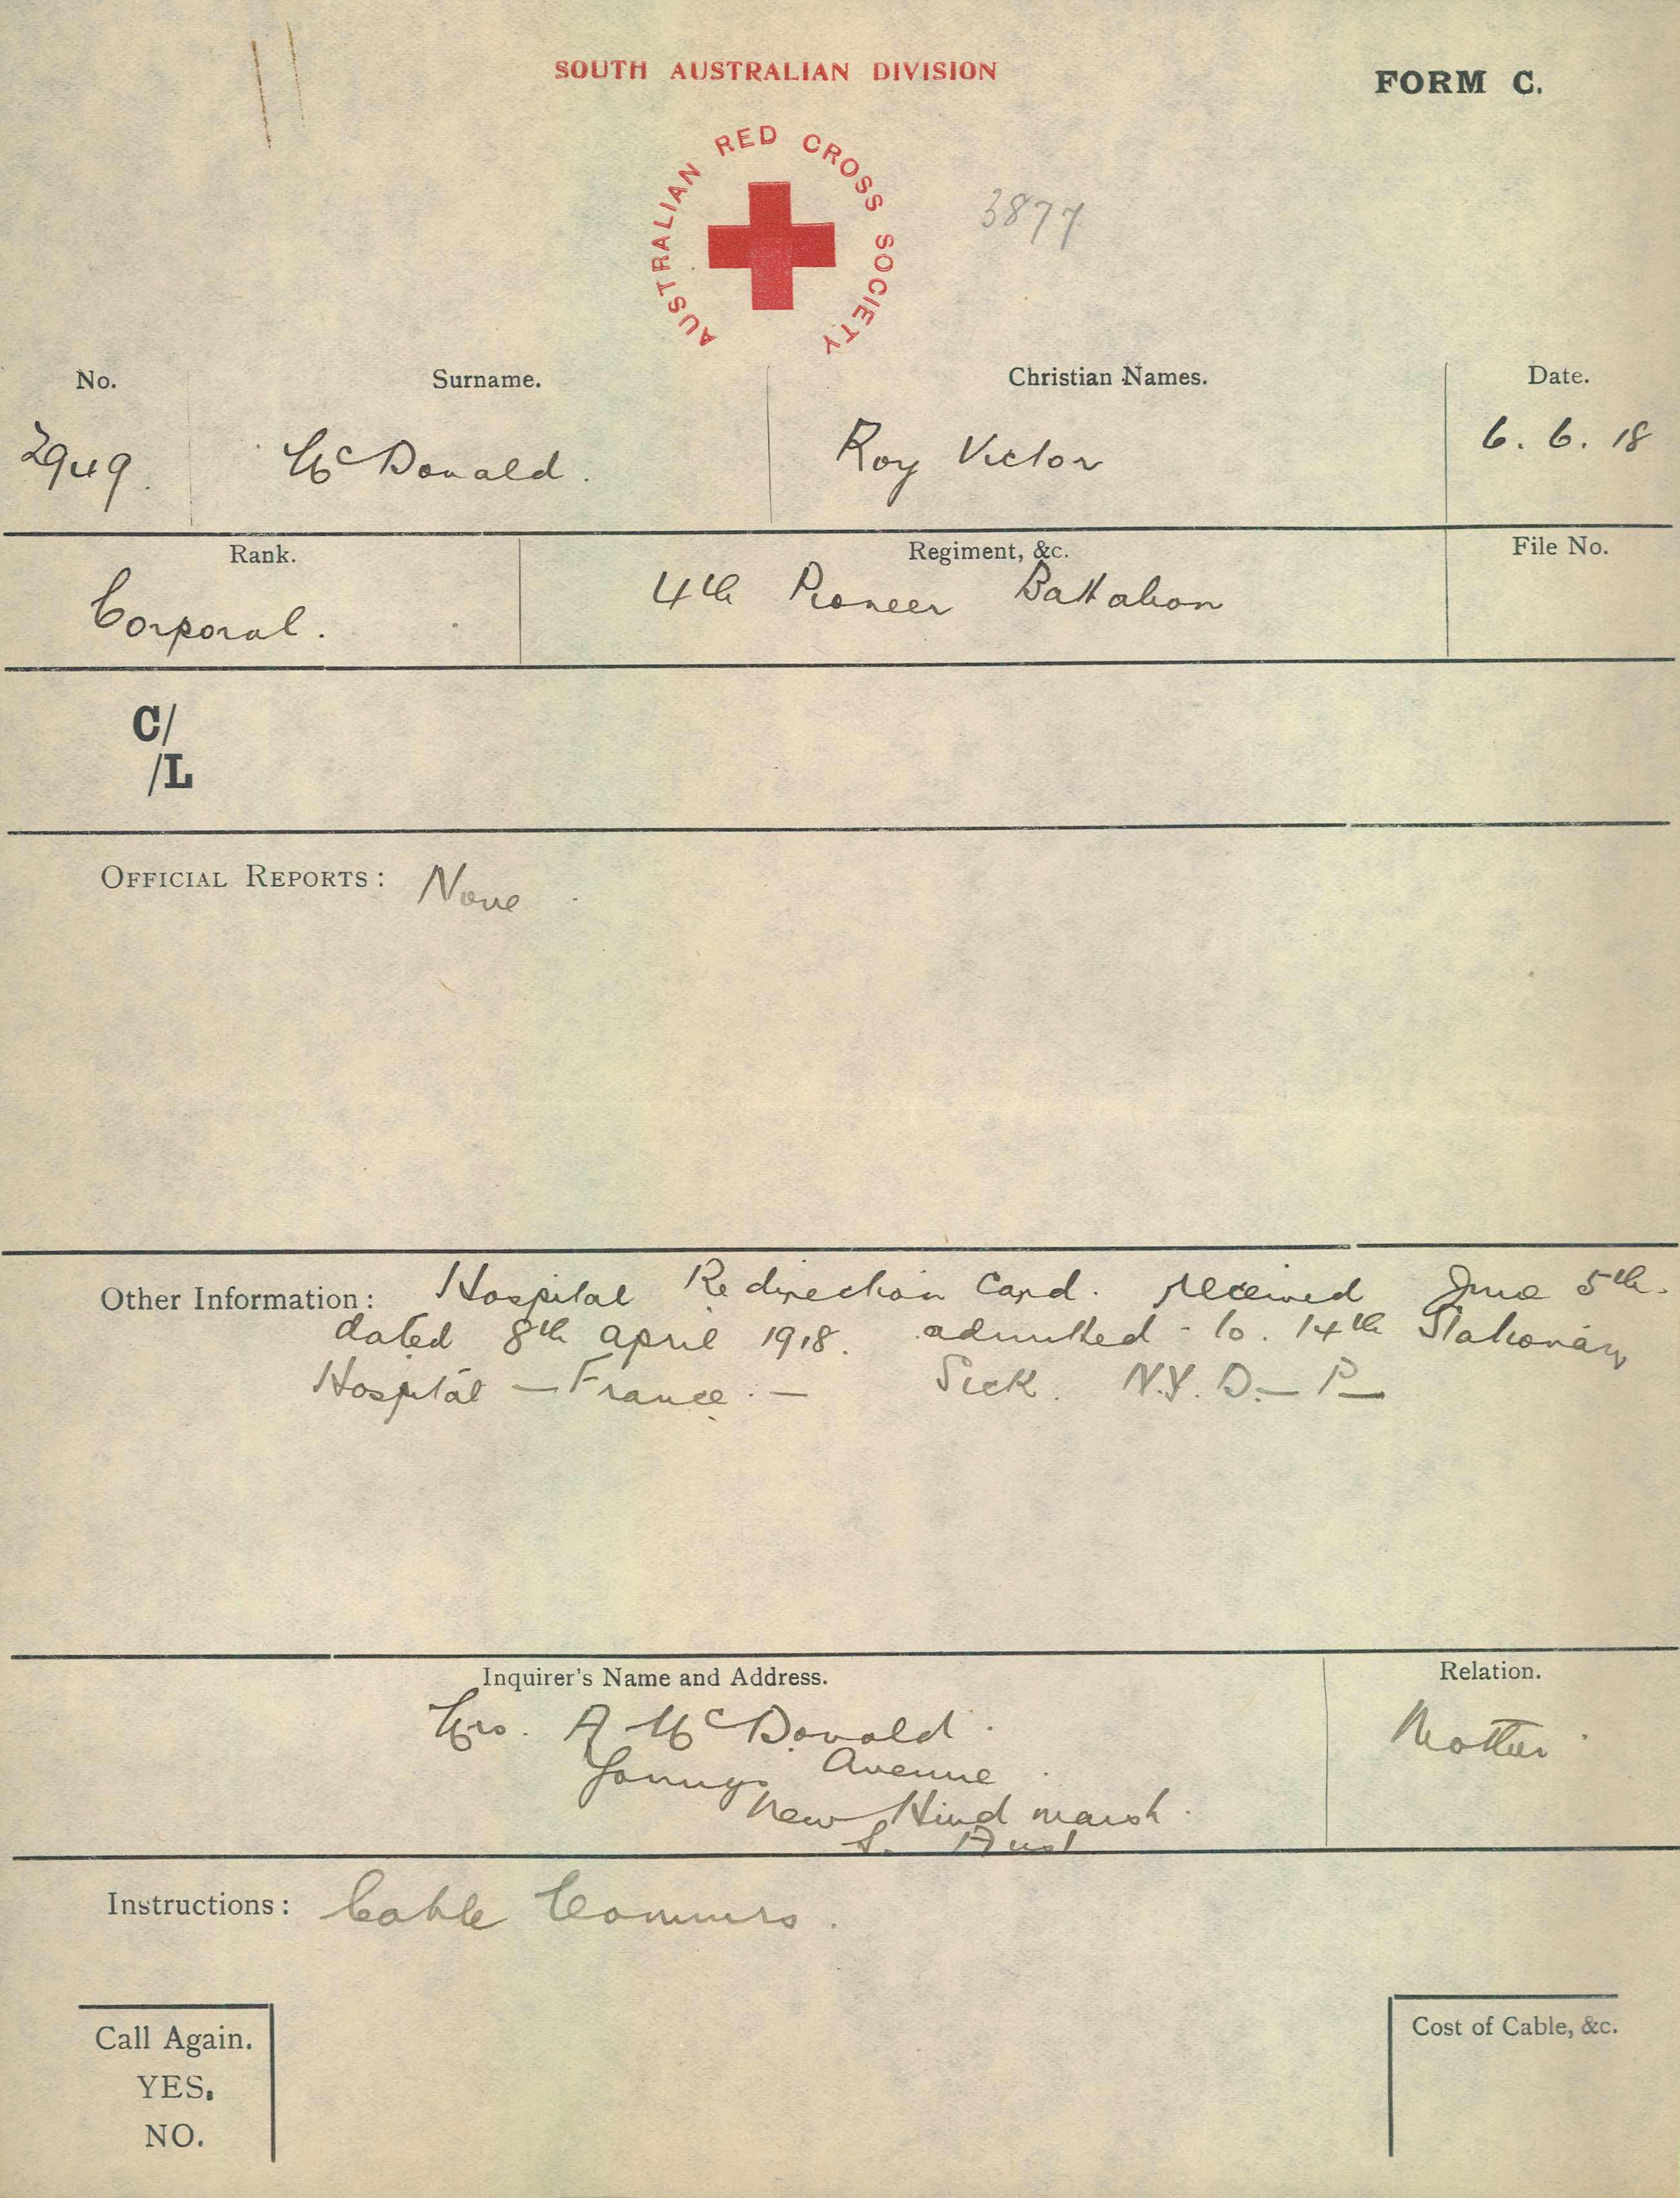 SOUTH AUSTRALIAN DIVISION
FORM C.
AUSTRALIAN RED CROSS SOCIETY
3877
No. Surname. Christian Names. Date.
2949. McDonald. Roy Victor 6. 6. 18
Rank. Regiment, &c. File No.
Corporal. 4th Pioneer Battalion
C/
/L
OFFICIAL REPORTS: None
Other Information: Hospital Redirection Card. received June 5th.
dated 8th april 1918. admitted - to. 14th Stationary
Hospital — France. — Sick. N.Y.D. — P —
Inquirer's Name and Address. Relation.
Mrs. A McDonald. Mother
Avenue
New Hindmarsh.
S. Aust
Instructions: Cable Commrs.
Call Again.
YES.
NO.
Cost of Cable, &c.